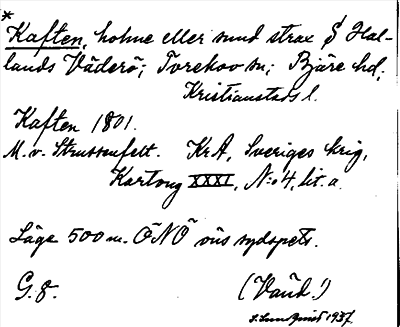 *
Kaften, holme eller sund strax S Hal-
lands Väderö; Torekov sn; Bjäre hd;
Kristianstads l.
Kaften 1801.
M. v. Strussenfelt. KrA, Sveriges krig,
Kartong XXXI, N:o 4, lit. a.
Läge 500 m. ÖNÖ öns sydspets.
G. g. (Vaud.!)
S. Lundquist 1937.